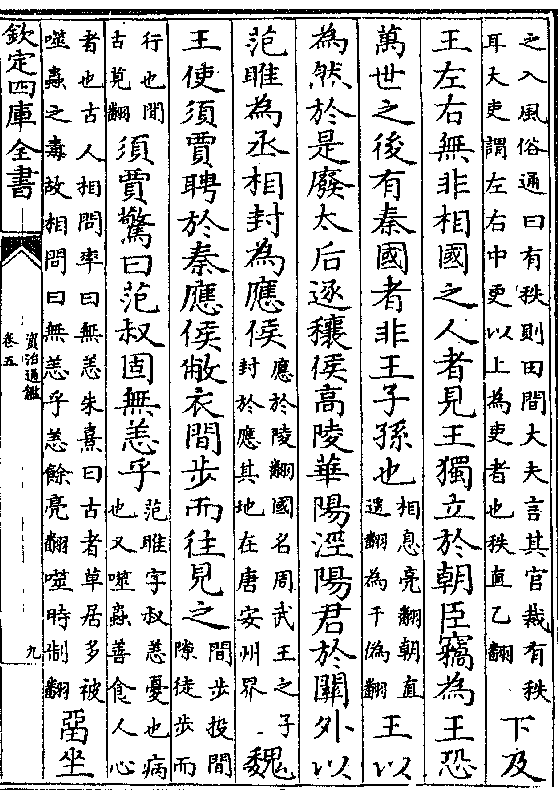 之入風俗通曰有秩則田間大夫言其官裁有秩
耳大吏謂左右中更以上為吏者也秩直乙翻
下及
王左右無非相國之人者見王獨立於朝臣竊為王恐
萬世之後有秦國者非王子孫也
相息亮翻朝直
遥翻為于偽翻
王以
為然於是廢太后逐穰侯高陵華陽涇陽君於關外以
范睢為丞相封為應侯
應於陵翻國名周武王之子
封於應其地在唐安州界
魏
王使須賈聘於秦應侯敝衣間步而往見之
間步投間
隙徒步而
行也間
古莧翻
須賈驚曰范叔固無恙乎
范睢字叔恙憂也病
也又噬蟲善食人心
者也古人相問率曰無恙朱熹曰古者草居多被
噬蟲之毒故相問曰無恙乎恙餘亮翻噬時制翻
畱坐
欽定四庫全書
資治通鑑
卷五
九